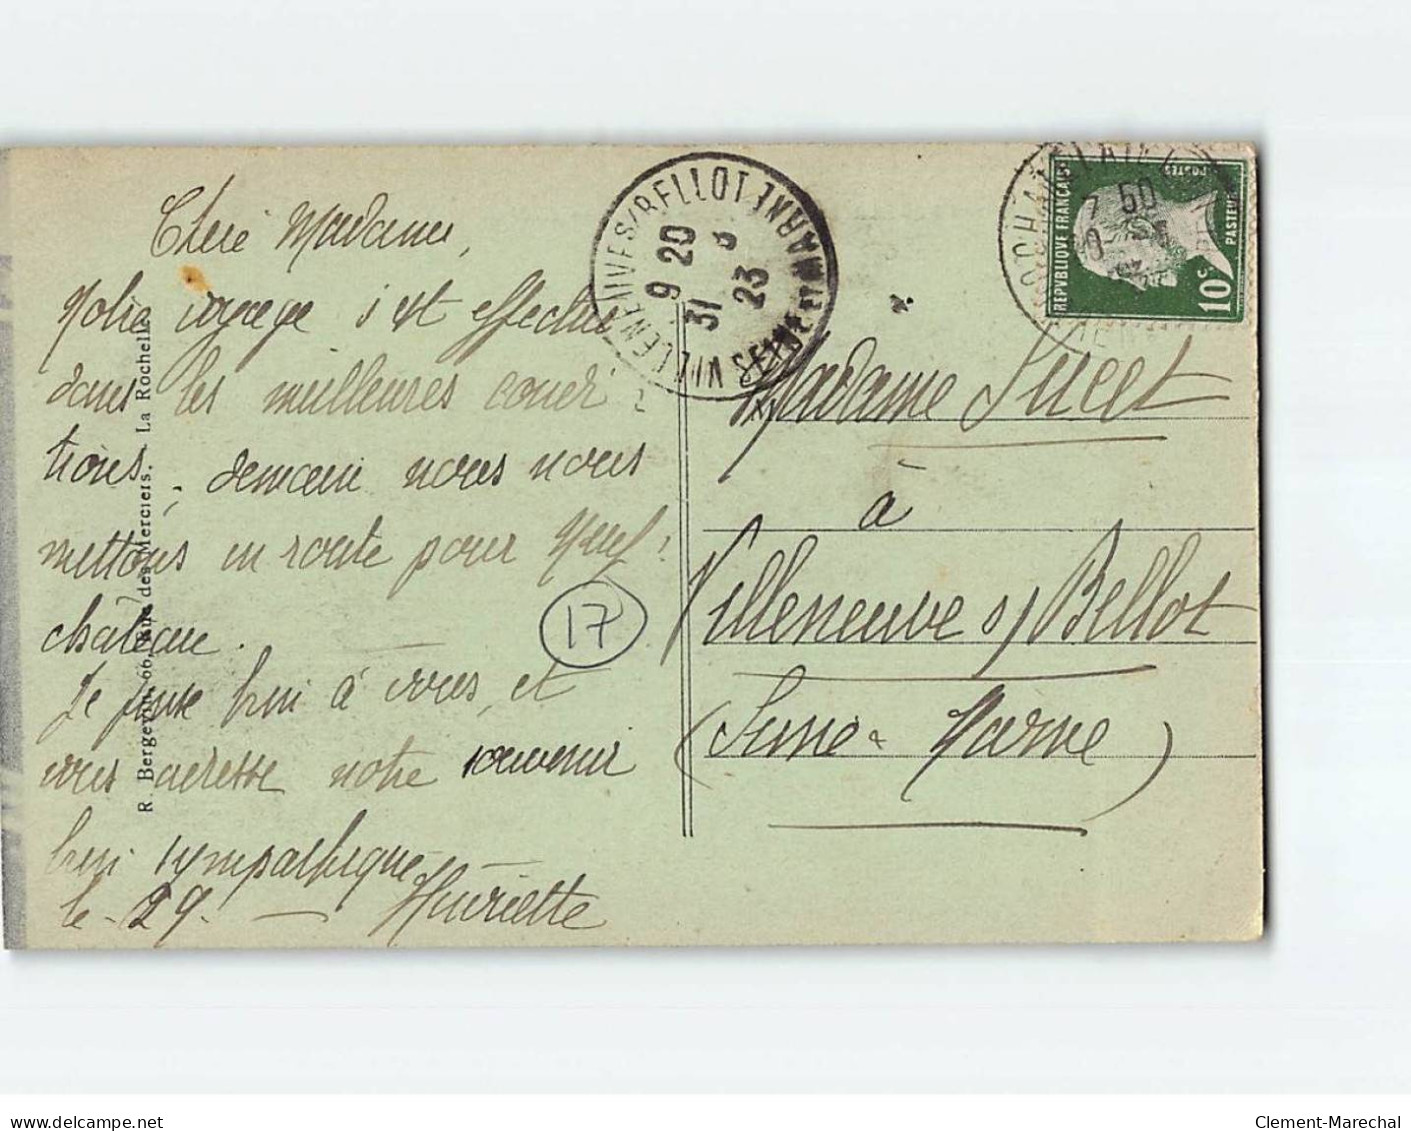 Chère Madame,
Notre voyage s'est effectué
dans les meilleures condi-
tions, demain nous nous
mettons en route pour Neuf-
chateau.
Je pense bien à vous, et
vous adresse notre souvenir
bien sympathique
le 29. — Henriette
R. Bergevin, 66, Rue des Merciers. La Rochelle
VILLENEUVE S/BELLOT SEINE ET MARNE
9 20
31 8
23
RÉPUBLIQUE FRANÇAISE
POSTES
PASTEUR
10c
50
Madame Sucet
à
Villeneuve s/ Bellot
(Seine & Marne)
17
delcampe.net
Clement-Marechal